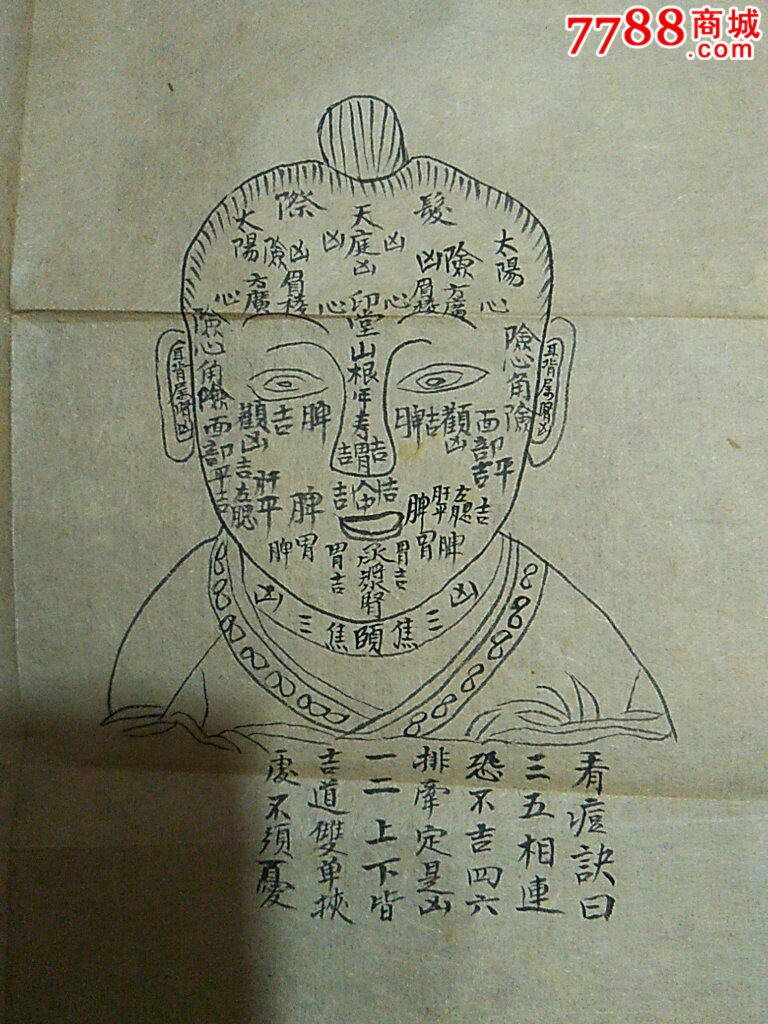 7788商城
.com
髮
際
天庭凶
凶
凶
太陽
太陽
險
凶
凶
險
方廣
眉棱
眉棱
方廣
心
心
心
心
印堂
山根
年壽
險心角險
險心角險
耳背屬腎凶
耳背屬腎凶
顴凶
吉
脾
脾
吉
顴凶
面部平吉
面部平吉
吉
胃
吉
吉
人中
吉
吉左腮
肝平
脾
脾
肝平
左腮
吉
脾
胃
胃吉
承漿腎
胃吉
胃
脾
凶
凶
三
焦
頤
焦
三
看痘訣曰
三五相連
恐不吉四六
排牽定是凶
一二上下皆
吉道雙单挾
處不須憂